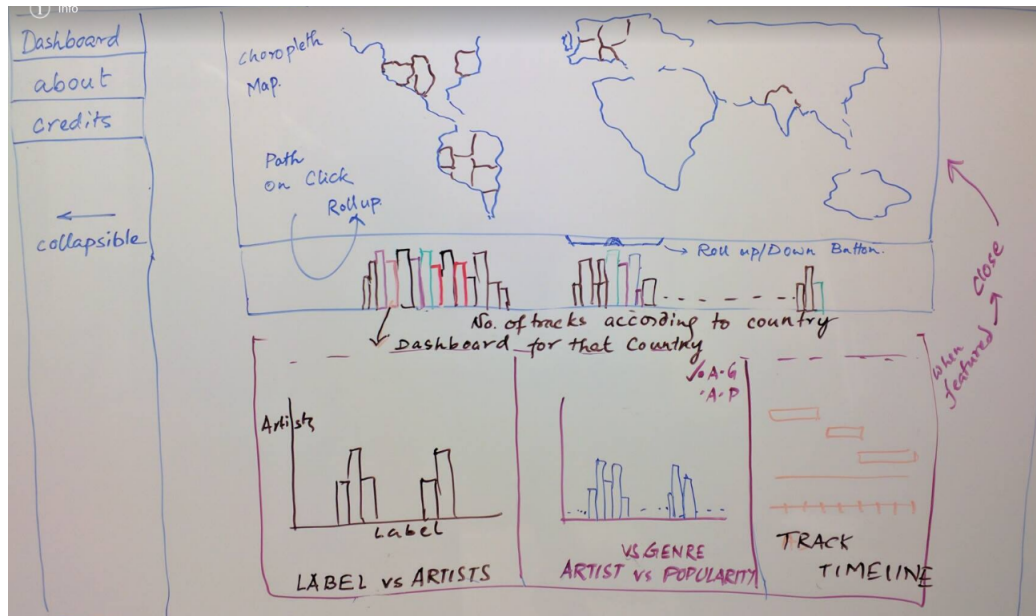 Info
Dashboard
about
credits
collapsible
Choropleth
Map.
Path
on Click
Rollup.
Roll up/Down Button.
No. of tracks according to country
Dashboard for that Country
when featured
close
Artists
Label
LABEL vs ARTISTS
A-G
A-P
VS GENRE
ARTIST vs POPULARITY
TRACK
TIMELINE